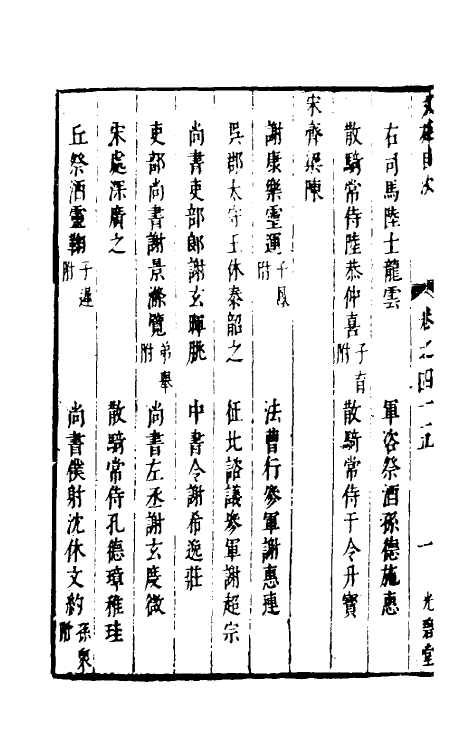 卷之四十五
一
光碧堂
右司馬陸士龍雲
軍咨祭酒孫德施惠
散騎常侍陸恭仲喜子育附
散騎常侍干令升寶
宋齊梁陳
謝康樂靈運子鳳附
法曹行參軍謝惠連
吳郡太守王休泰韶之
征北諮議參軍謝超宗
尚書吏部郎謝玄暉朓
中書令謝希逸莊
吏部尚書謝景滌覽弟舉附
尚書左丞謝玄度微
宋處深廣之
散騎常侍孔德璋稚珪
丘祭酒靈鞠子遲附
尚書僕射沈休文約孫眾附